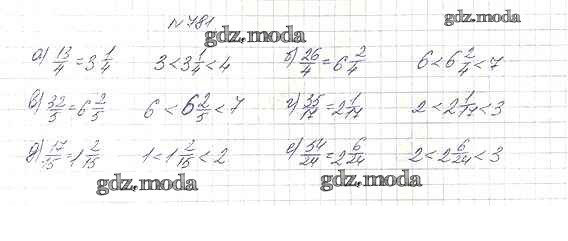 №781
gdz.moda
gdz.moda
а) 13/4 = 3 1/4   3 < 3 1/4 < 4   б) 26/4 = 6 2/4   6 < 6 2/4 < 7
в) 32/5 = 6 2/5   6 < 6 2/5 < 7   г) 35/17 = 2 1/17   2 < 2 1/17 < 3
д) 17/15 = 1 2/15   1 < 1 2/15 < 2   е) 54/24 = 2 6/24   2 < 2 6/24 < 3
gdz.moda
gdz.moda